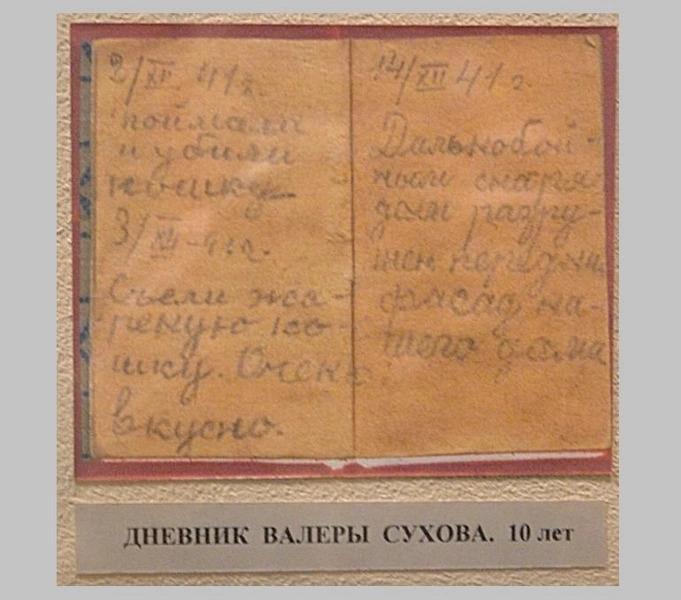 2/XII 41 г.
поймали
и убили
кошку
3/XII-41г.
Съели жа-
реную ко-
шку. Очень
вкусно.
14/XII 41 г.
Дальнобой-
ным снаря-
дом разру-
шен передний
фасад на-
шего дома
ДНЕВНИК ВАЛЕРЫ СУХОВА. 10 лет